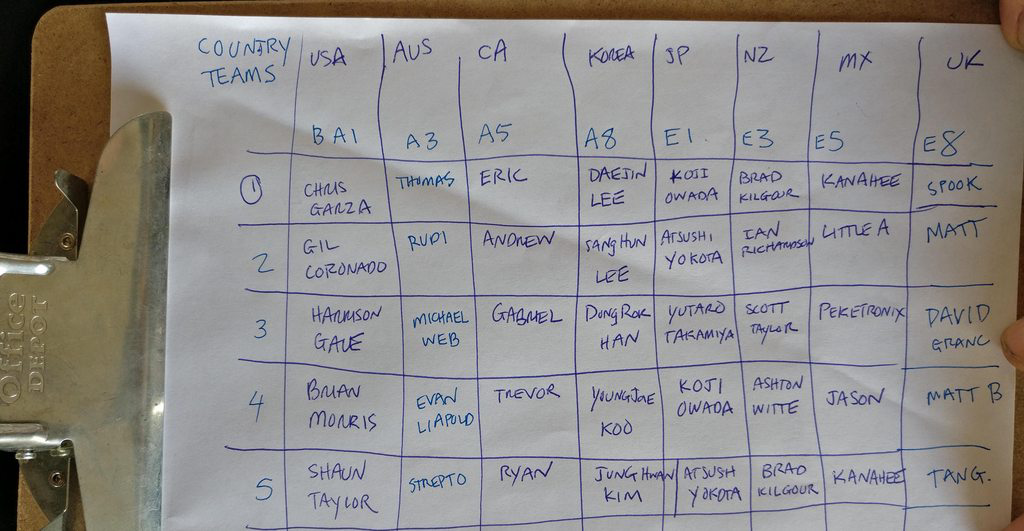 COUNTRY TEAMS USA AUS CA KOREA JP NZ MX UK
BA1 A3 A5 A8 E1. E3 E5 E8
1 CHRIS GARZA THOMAS ERIC DAEJIN LEE KOJI OWADA BRAD KILGOUR KANAHEE SPOOK
2 GIL CORONADO RUDI ANDREW SANGHUN LEE ATSUSHI YOKOTA IAN RICHARDSON LITTLE A MATT
3 HARRISON GALE MICHAEL WEB GABRIEL DONGROK HAN YUTARO TAKAMIYA SCOTT TAYLOR PEKETRONIX DAVID GRANC
4 BRIAN MORRIS EVAN LIAPOLD TREVOR YOUNGJOE KOO KOJI OWADA ASHTON WITTE JASON MATT B
5 SHAUN TAYLOR STREPTO RYAN JUNGHWAN KIM ATSUSH YOKOTA BRAD KILGOUR KANAHEE TANG.
Office
DEPOT